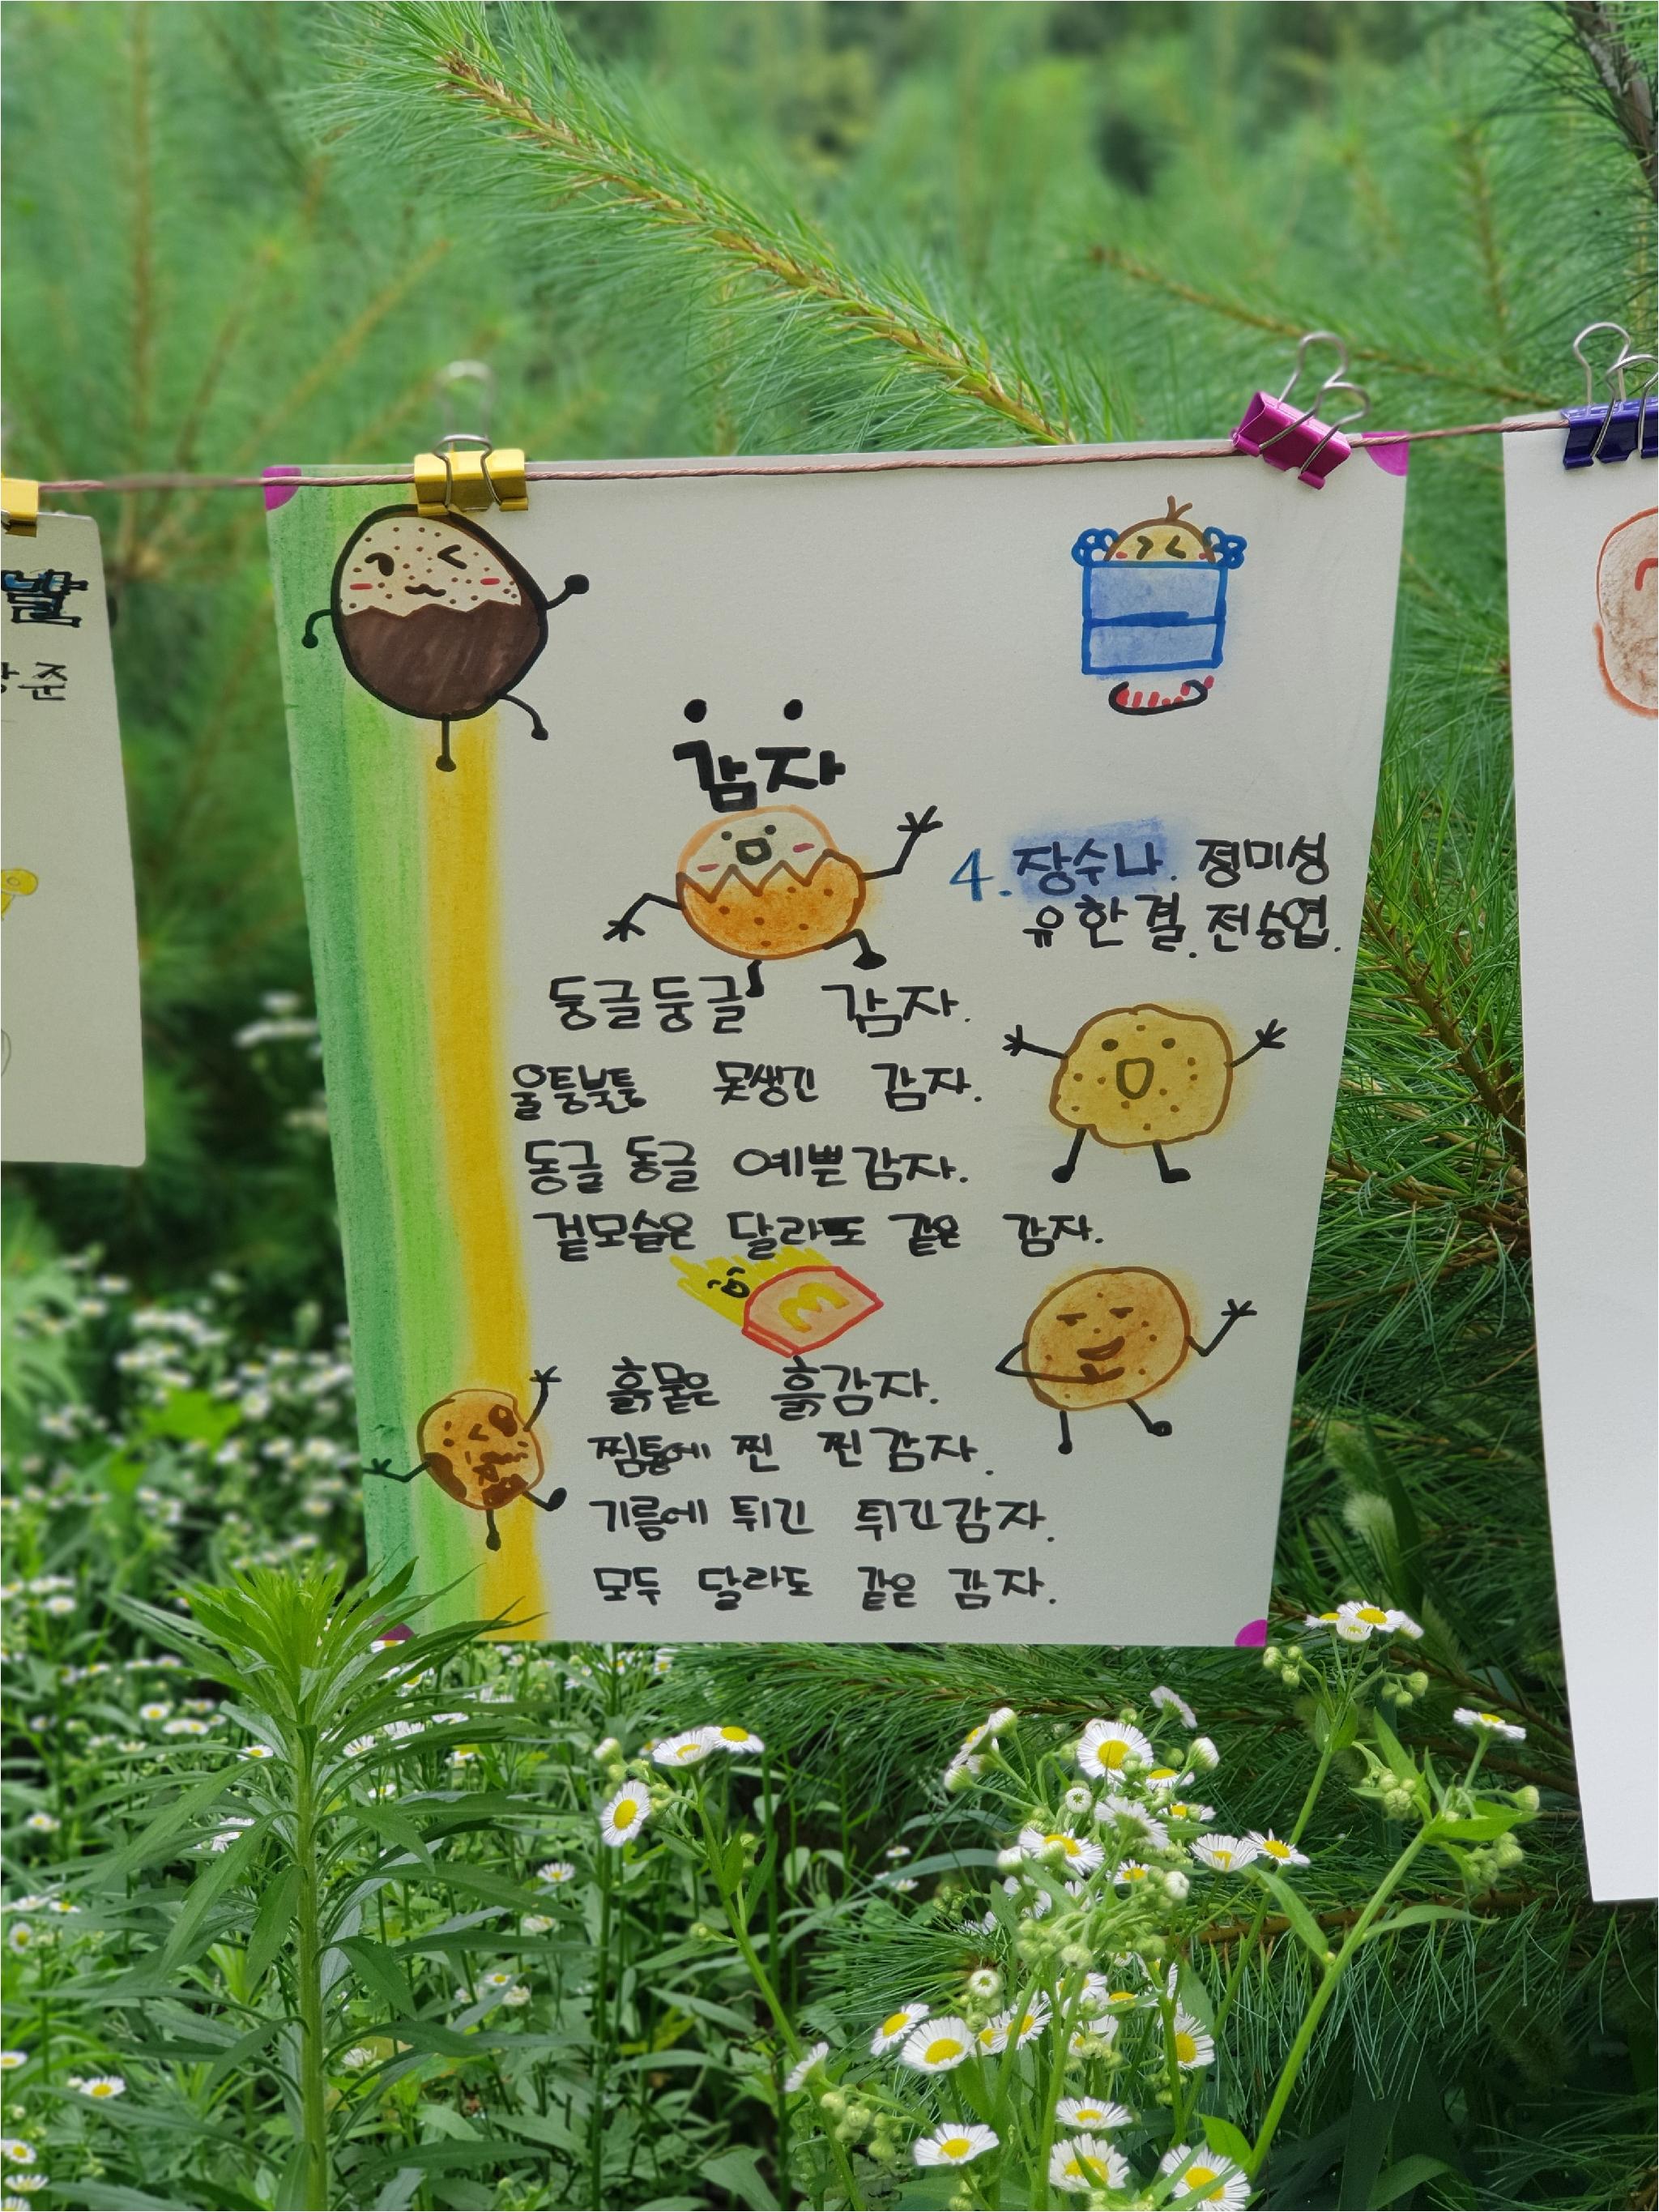 발
준
감자
4. 장수나. 정미성
유한결. 전승엽.
둥글둥글 감자.
울퉁불퉁 못생긴 감자.
동글동글 예쁜감자.
겉모습은 달라도 같은 감자.
M
흙묻은 흙감자.
찜통에 찐 찐감자.
기름에 튀긴 튀긴감자.
모두 달라도 같은 감자.